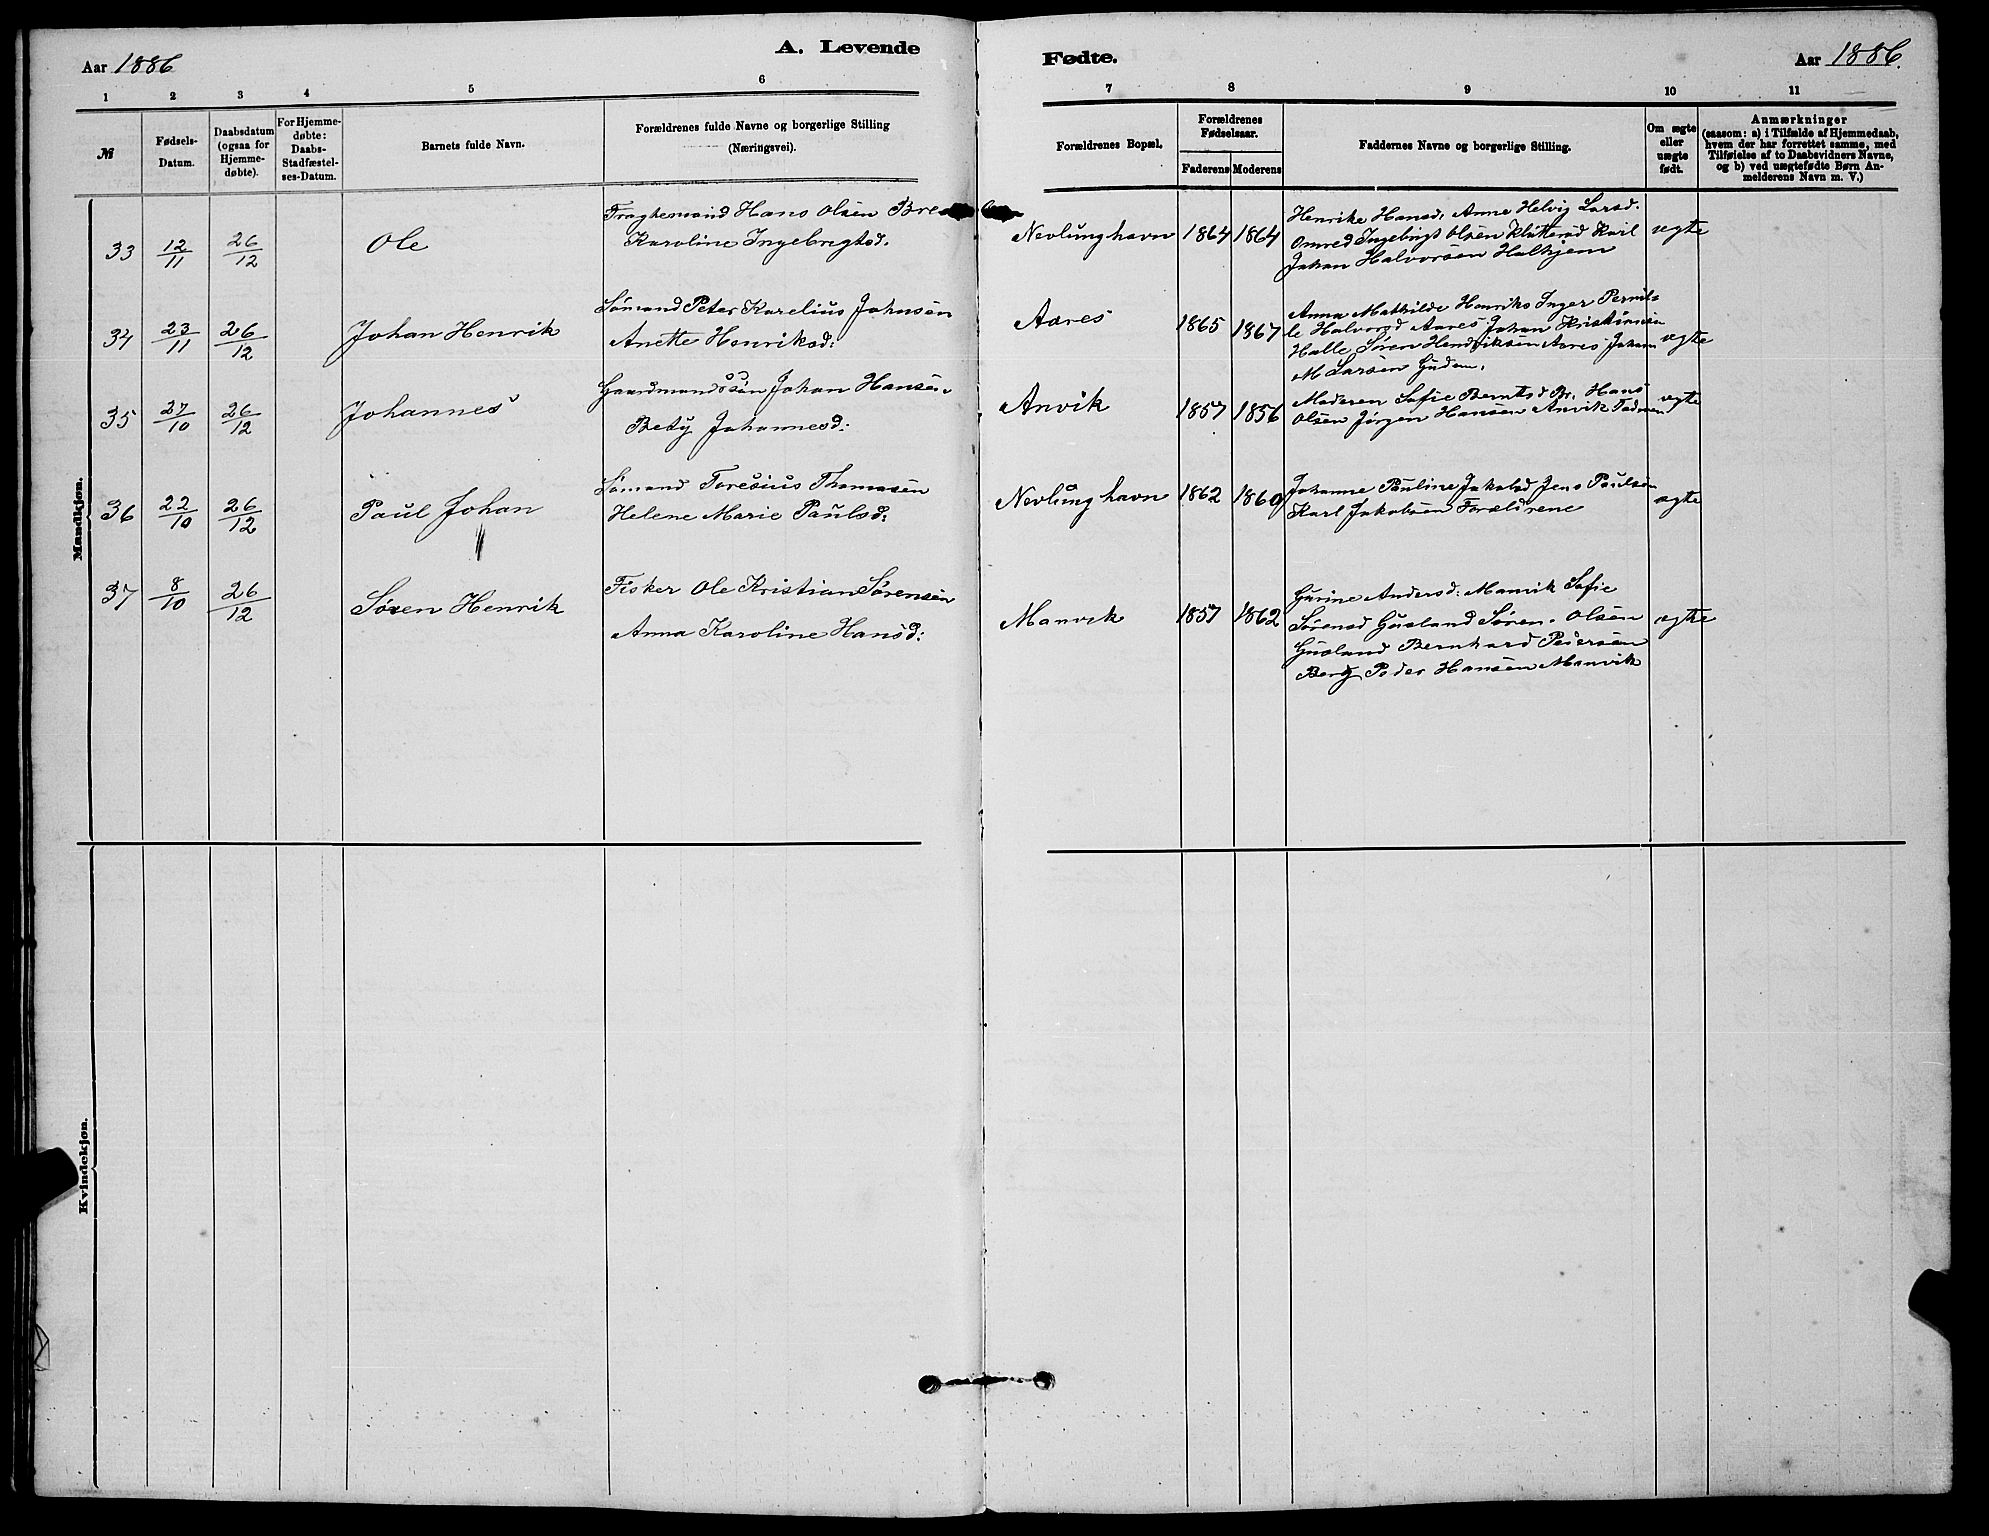 Aar 1886
A. Levende
1 2 3 4 5 6
№
Fødsels-
Datum.
Daabsdatum
(ogsaa for
Hjemme-
døbte).
For Hjemme-
døbte:
Daabs-
Stadfæstel-
ses-Datum.
Barnets fulde Navn.
Forældrenes fulde Navne og borgerlige Stilling
(Næringsvei).
Mandkjøn.
33 12/11 26/12 Ole
Fragtemand Hans Olsen Bre
Karoline Ingebregtsd.
34 23/11 26/12 Johan Henrik
Sømand Peter Karelius Johnsen
Anette Henriksd:
35 27/10 26/12 Johannes
Gaardmandssøn Johan Hansen
Bety Johannesd:
36 22/10 26/12 Paul Johan
Sømand Toresius Thomasen
Helene Marie Paulsd:
37 8/10 26/12 Søren Henrik
Fisker Ole Kristian Sørensen
Anna Karoline Hansd:
Kvindekjøn.
Fødte.
Aar 1886.
7 8 9 10 11
Forældrenes Bopæl.
Forældrenes
Fødselsaar.
Faderens Moderens
Faddernes Navne og borgerlige Stilling.
Om ægte
eller
uægte
født.
Anmærkninger
(saasom: a) i Tilfælde af Hjemmedaab,
hvem der har forrettet samme, med
Tilføielse af to Daabsvidners Navne,
og b) ved uægtefødte Børn An-
melderens Navn m. V.)
Nevlunghavn 1864 1864
Henrike Hansd, Anne Helvig Larsd.
Omred Ingebrigt Olsen Klåtterød Karl
Johan Halvorsen Halhjem
ægte
Aares 1865 1867
Anna Mathilde Henriks Inger Pernil-
le Halvorsd Aares Johan Kristiansen
Halle Søren Hendriksen Aares Johan
M Larsen Gudem.
ægte
Anvik 1857 1856
Moderen Sofie Berntsd Br. Hans
Olsen Jørgen Hansen Anvik Faderen
ægte
Nevlunghavn 1862 1860
Johanne Pauline Jakobsd Jens Paulsen
Karl Jakobsen Forældrene
ægte
Manvik 1857 1862
Gurine Andersd: Manvik Sofie
Sørensd Gusland Søren Olsen
Gusland Bernhard Pedersen
Berg Peder Hansen Manvik
ægte